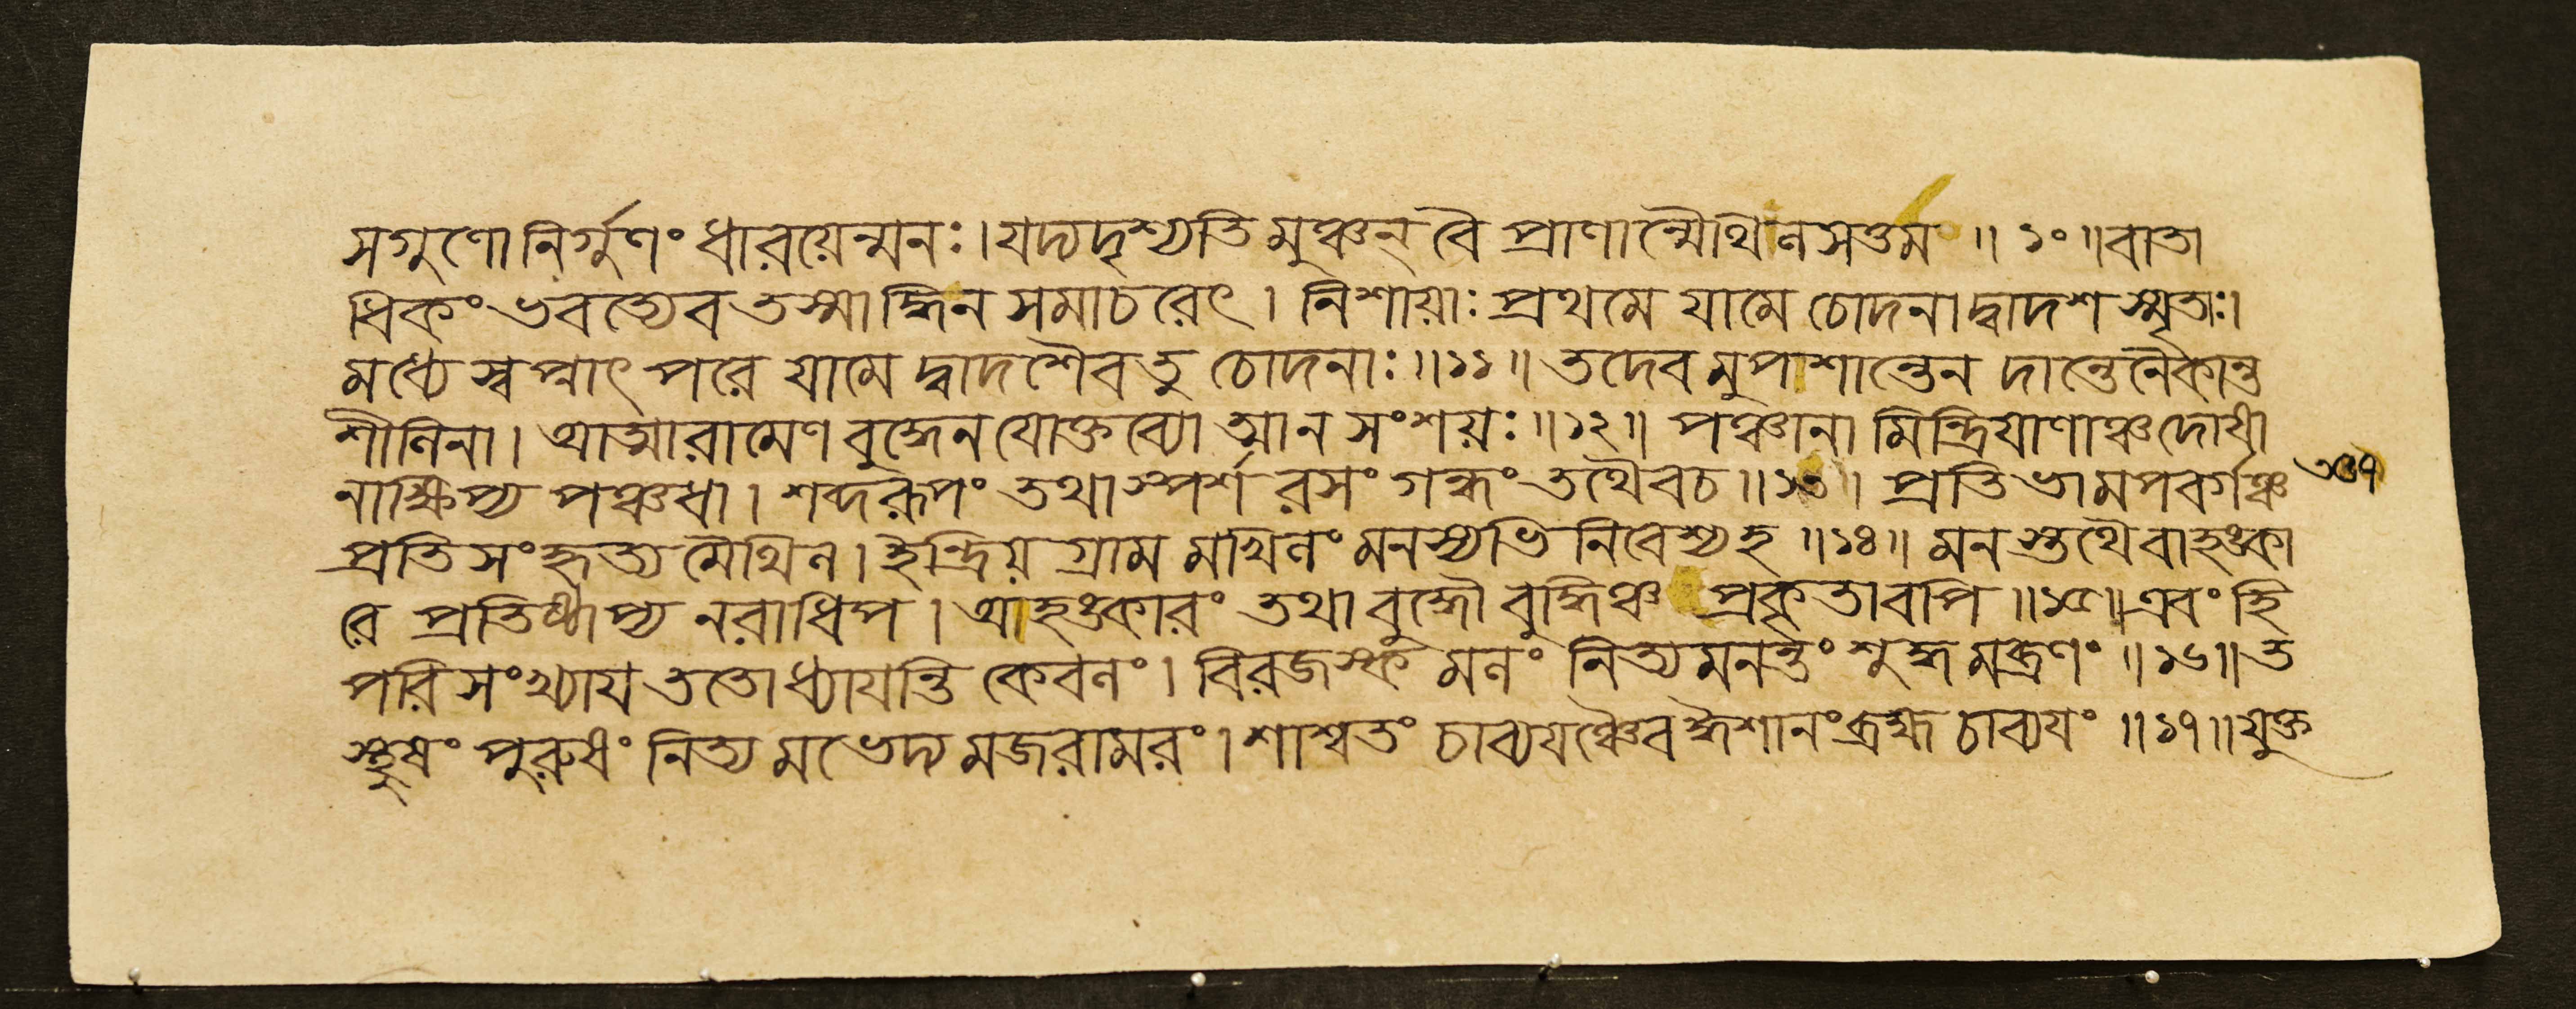 সগুণো নির্গুণং ধারয়েন্মনঃ। যদ্যদৃশ্যতি মুঞ্চন্ বৈ প্রাণান্মৈথিলসত্তম ॥ ১০ ॥ বাতা
ধিকং ভবত্যেব তস্মাদ্ধি ন সমাচরেৎ। নিশায়াঃ প্রথমে যামে চোদনা দ্বাদশ স্মৃতাঃ।
মধ্যে স্বপ্নাৎ পরে যামে দ্বাদশৈব তু চোদনাঃ ॥ ১১ ॥ তদেবমুপাশান্তেন দান্তেনৈকান্ত
শীলিনা। আত্মারামেণ বুদ্ধেন যোক্তব্যো ত্মা ন সংশয়ঃ ॥ ১২ ॥ পঞ্চানা মিন্দ্রিয়াণাঞ্চ দোষা
নাক্ষিপ্য পঞ্চধা। শব্দরূপং তথা স্পর্শ রসং গন্ধং তথৈবচ ॥ ১৩ ॥ প্রতিভামপবর্গঞ্চ
প্রতিসংহৃত্য মৈথিল। ইন্দ্রিয় গ্রাম মখিলং মনস্যভি নিবেশ্যহ ॥ ১৪ ॥ মনস্তথৈবাহঙ্কা
রে প্রতিষ্ঠাপ্য নরাধিপ। আহঙ্কারং তথা বুদ্ধৌ বুদ্ধিঞ্চ প্রকৃতাবপি ॥ ১৫ ॥ এবং হি
পরিসংখ্যায় ততো ধ্যায়ন্তি কেবলং। বিরজস্ক মলং নিত্যমনন্তং শুদ্ধমব্রণং ॥ ১৬ ॥ ত
স্থুষং পুরুষং নিত্য মভেদ্য মজরামরং। শাশ্বতং চাব্যয়ঞ্চৈব হ্যৈশানং ব্রহ্ম চাব্যয়ং ॥ ১৭ ॥ যুক্ত